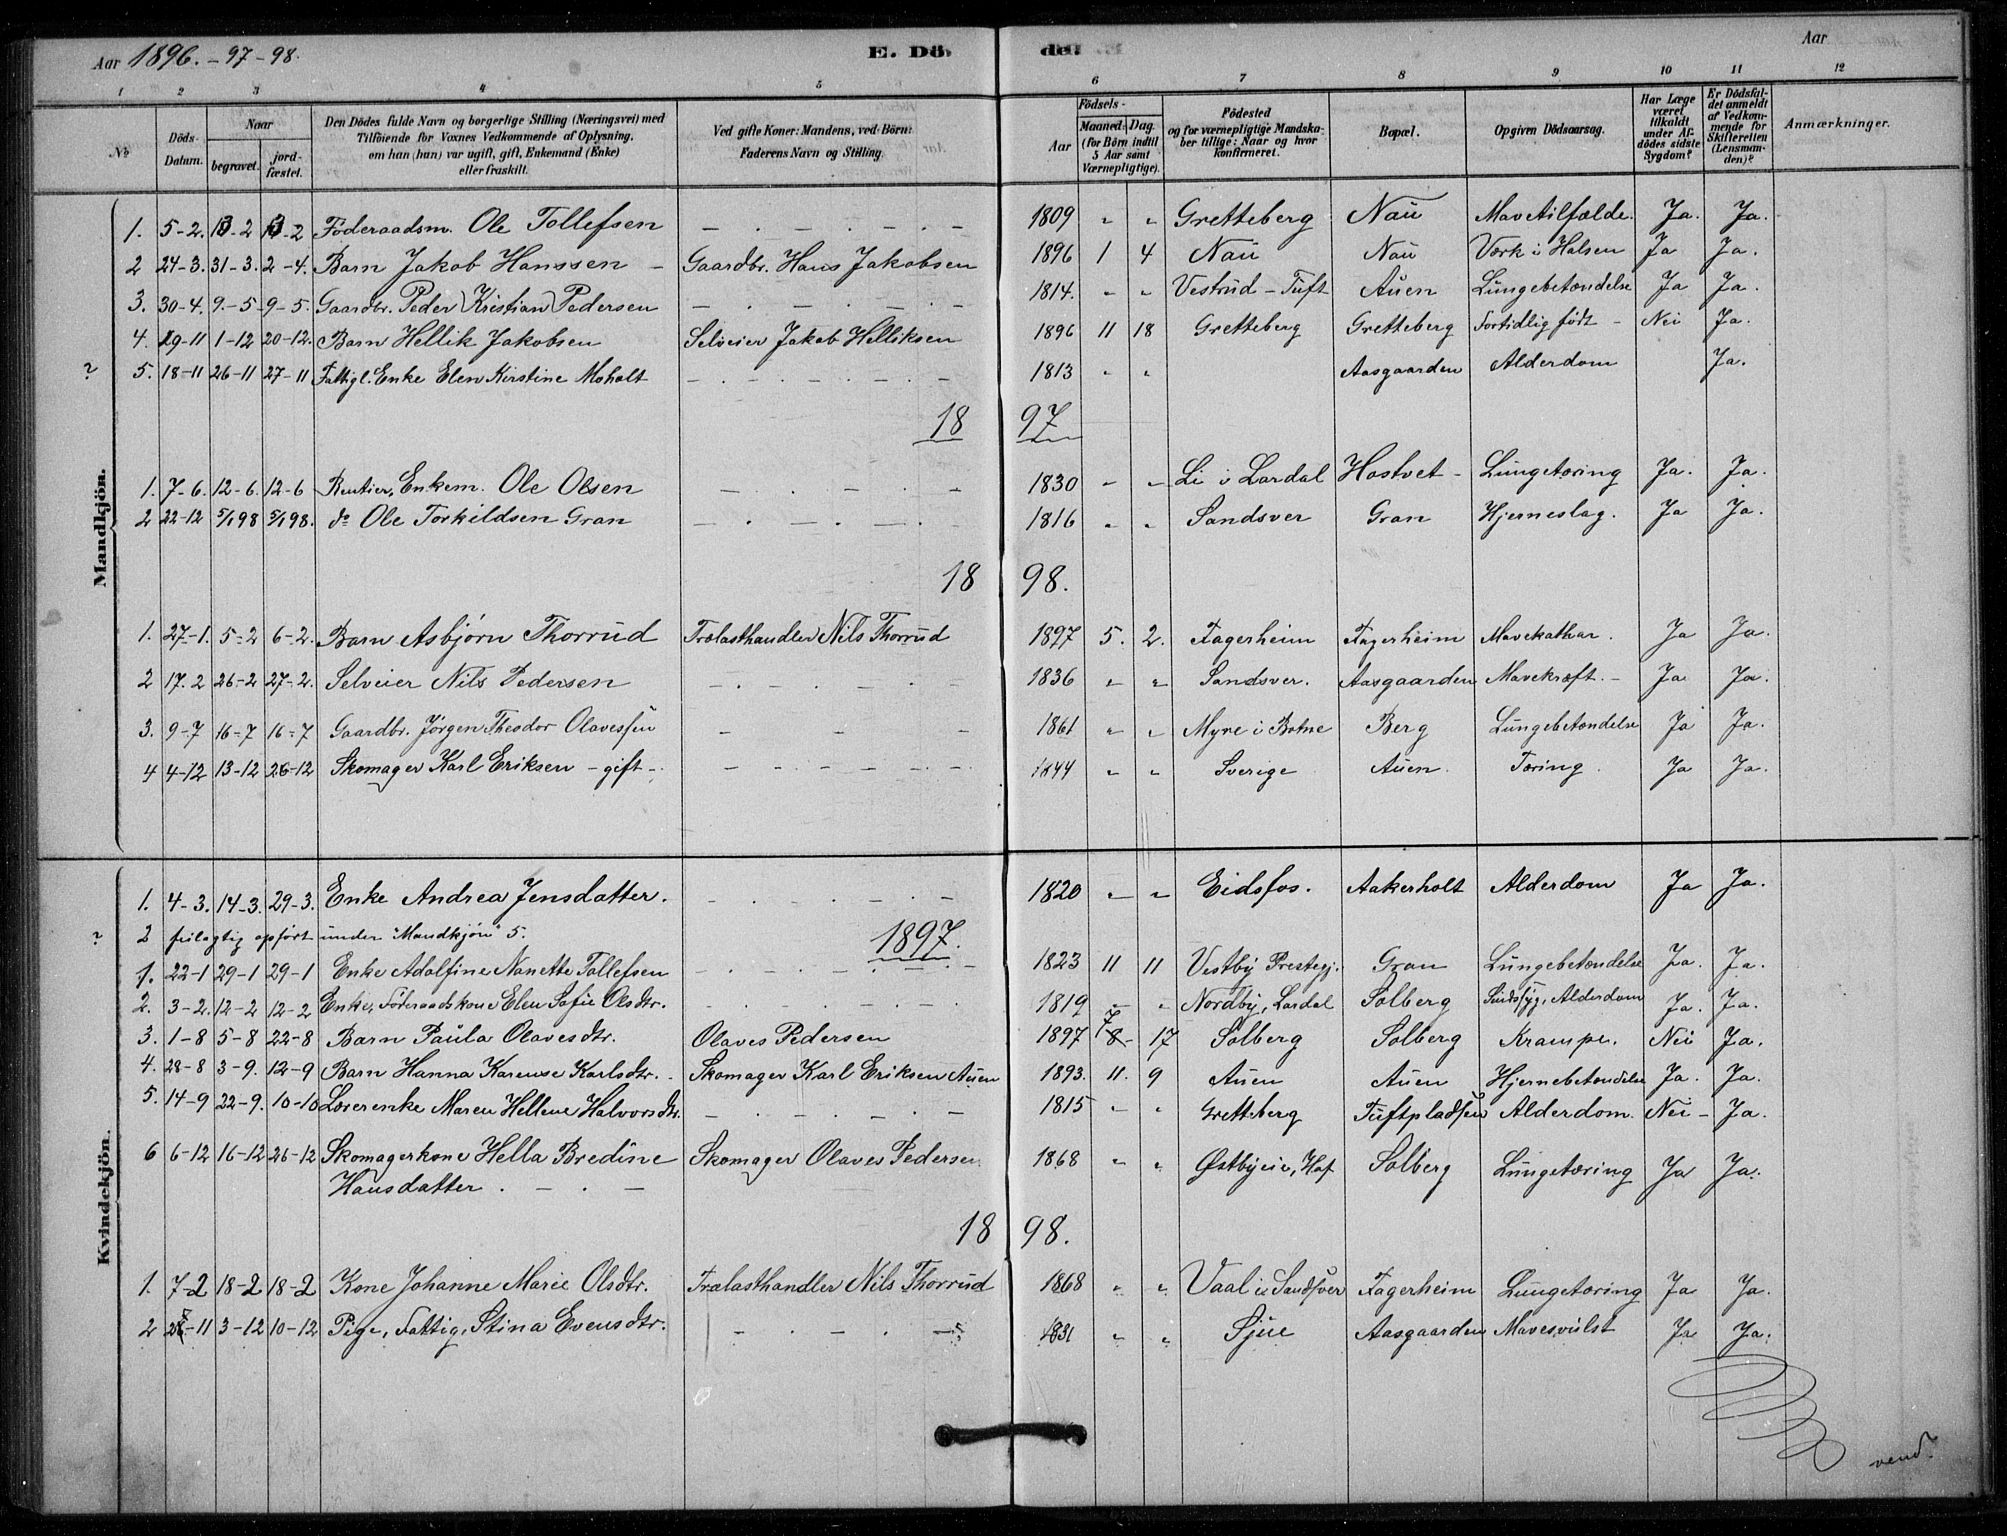 Aar 1896. - 97 - 98. E. Dö- de. Aar
1 2 3 4 5 6 7 8 9 10 11 12
No Döds-Datum. Naar begravet. jordfæstet. Den Dödes fulde Navn og borgerlige Stilling (Næringsvei) med Tilföiende for Voxnes Vedkommende af Oplysning, om han (hun) var ugift, gift, Enkemand (Enke) eller fraskilt. Ved gifte Koner: Mandens, ved Börn: Faderens Navn og Stilling. Födsels- Aar Maaned: Dag. (for Börn indtil 5 Aar samt Værnepligtige). Födested og for værnepligtige Mandskaber tillige: Naar og hvor konfirmeret. Bopæl. Opgiven Dödsaarsag. Har Læge været tilkaldt under Afdödes sidste Sygdom? Er Dödsfaldet anmeldt af Vedkommende for Skifteretten (Lensmanden)? Anmærkninger.
Mandkjön.
1. 5-2. 13-2 13-2 Föderaadsm. Ole Tollefsen - . - . - . - . - 1809 " " Gretteberg Nau Mavetilfælde. Ja. Ja.
2 24-3. 31-3. 2-4. Barn Jakob Hanssen - Gaardbr. Hans Jakobsen 1896 1 4 Nau Nau Værk i Halsen Ja Ja.
3. 30-4. 9-5 9-5. Gaardbr. Peder (Kristian) Pedersen - . - . - . - . - 1814. - " Vestrud - Tuft Auen Lungebetændelse Ja Ja.
4. 19-11 1-12 20-12. Barn Hellik Jakobsen Selveier Jakob Helliksen 1896 11 18 Gretteberg Gretteberg Fortidlig født - Nei Ja.
? 5. 18-11 26-11 27-11 Fattigl. Enke Elen Kirstine Moholt - . - . - . - . - 1813 " " Aasgaarden Alderdom Ja.
18 97
1. 7-6. 12-6. 12-6 Rentier, Enkem. Ole Olsen - . - . - . - 1830 - " Li i Lardal Hostvet - Lungetæring Ja. Ja.
2 22-12 5/1 98 5/1 98. do Ole Torkildsen Gran - . - . - . - 1816 " " Sandsver Gran Hjerneslag. Ja Ja.
18 98.
1. 27-1. 5-2 6-2. Barn Asbjörn Thorrud Trælasthandler Nils Thorrud 1897 5. 2. Fagerheim Fagerheim Mavekathar. Ja Ja.
2 17.2 26-2 27-2. Selveier Nils Pedersen - . - . - . - . - 1836 " " Sandsver. Aasgaarden Mavekræft. - Ja Ja.
3. 9-7 16-7 16-7 Gaardbr. Jørgen Theodor Olavessen - - - 1861 " " Myre i Botne Berg Lungebetændelse Ja Ja.
4 4-12 13-12 26-12 Skomager Karl Eriksen - gift -. - - - - - . - . 1844 " " Sverige Auen. Tæring. Ja Ja.
Kvindekjön.
1. 4-3. 14-3. 29-3. Enke Andrea Jensdatter. - . - . - . - . - 1820 - " Eidsfos. Aakerholt Alderdom Ja Ja.
? 2 feilagtig opfört under "Mandkjön" 5. 1897.
1. 22-1 29-1 29-1 Enke Adolfine Nanette Tollefsen - . - . - . - . - 1823 11 11 Vestby Prestegj. Gran Lungebetændelse Ja. Ja.
2. 3-2. 12-2 12-2 Enke, Föderaadskone Elen Sofie Olsdtr. - . - . - . - . - 1819 - " Nordby, Lardal Solberg Sindssyg, Alderdom Ja. Ja.
3. 1-8 5-8 22-8 Barn Paula Olavesdtr. Olaves Pedersen 1897 7 8- 17 Solberg Solberg Krampe. Nei Ja.
4. 28-8 3-9. 12-9 Barn Hanna Karense Karlsdtr. - Skomager Karl Eriksen Auen 1893. 11. 9 Auen Auen Hjernebetændelse Ja. Ja.
5. 14-9 22-9. 10-10 Lærerenke Maren Hellene Halvorsdtr. - . - . - . - . - 1815 - " Gretteberg Tuftpladsen Alderdom. Nei - Ja.
6 6-12 16-12 26-12 Skomagerkone Hella Bredine Skomager Olaves Pedersen 1868 " " Østbyeie, Hof Solberg Lungetæring Ja Ja.
Hansdatter . - . -
18 98.
1. 7-2 18-2 18-2 Kone Johanne Marie Olsdtr. Trælasthandler Nils Thorrud 1868 " " Vaal i Sandsver Fagerheim Lungetæring Ja Ja.
2 26-11 3-12 10-12 Pige, Fattig, Stina Evensdtr. - . - . - . - 1831 " " Sjue Aasgaarden Mavesvulst Ja Ja.
vend.